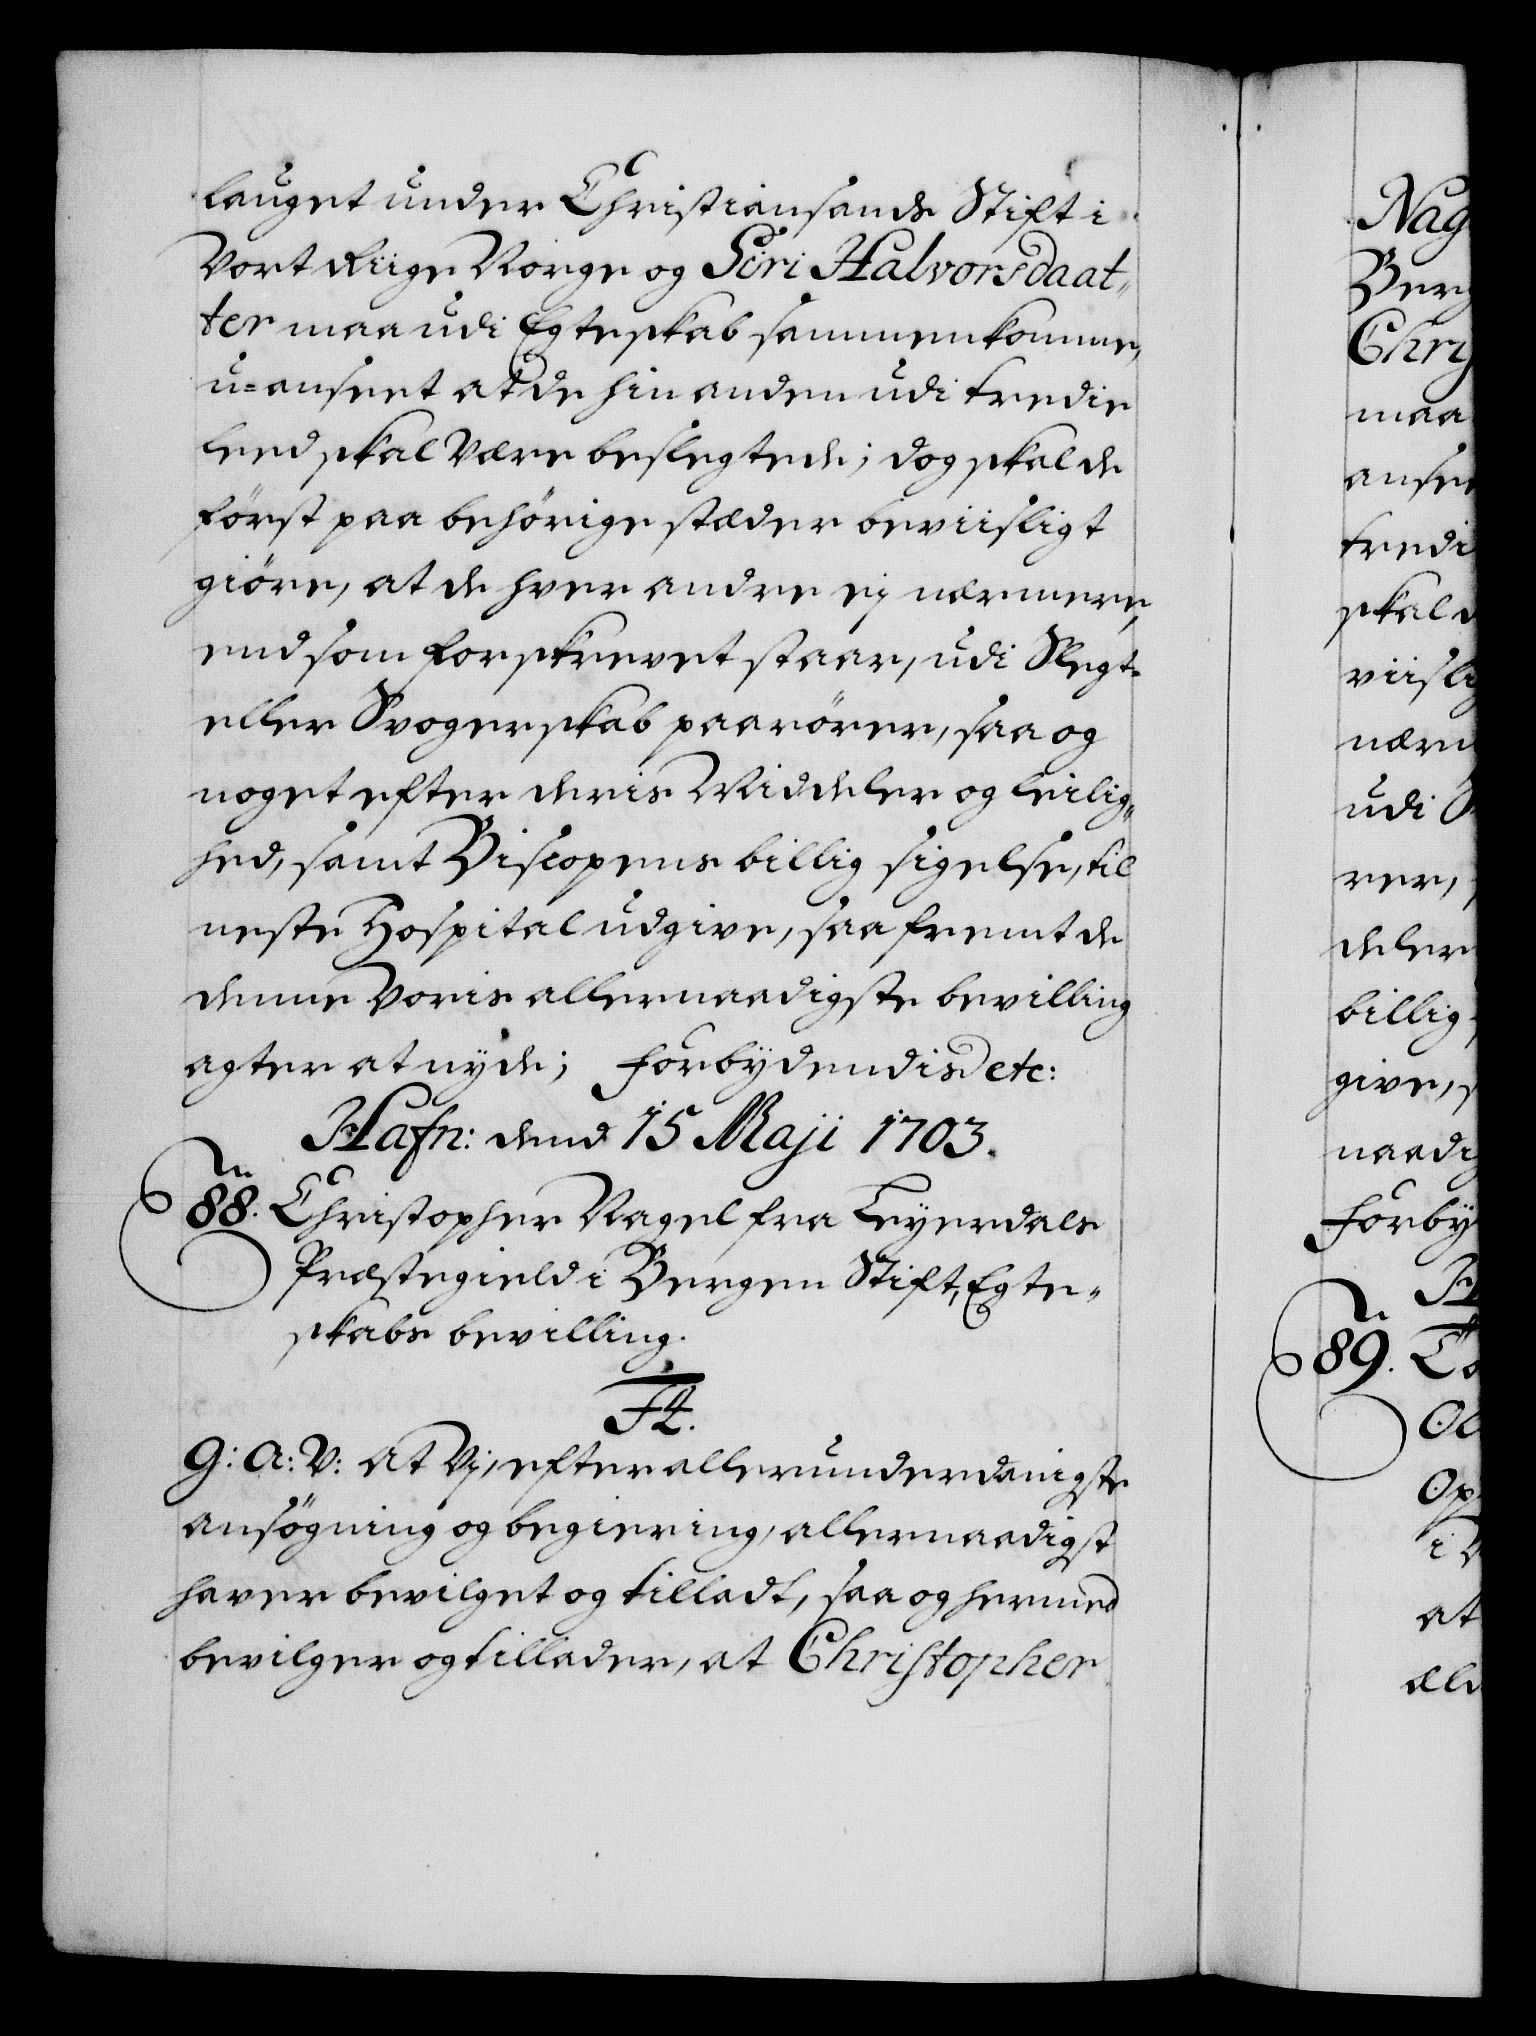 lauget under Christiansands Stift i
Vort Riige Norge og Siri Halvorsdaat„
ter maa udi Egteskab sammenkomme,
u=anseet at de hin anden udi tredie
leed skal Være beslegtede; dog skal de
först paa behörige stæder beviisligt
giöre, at de hver andre ej nærmere,
end som forskrevet staar, udi Slegt-
eller Svogerskab paarörer, saa og
noget efter deris Middeler og Leilig„
hed, samt Biscopens billig sigelse, til
neste Hospital udgive, saa fremt de
denne Voris allernaadigste bevilling
agter at nyde; Forbydendis etc:
Hafn: dend 15 Maji 1703.
88. Christopher Nagel fra Leyerdals
Præstegield i Bergen Stift, Egte„
skabs bevilling.
F4.
G: A: V: At Vj, efter allerunderdanigste
ansögning og begiering, allernaadigst
haver bevilget og tilladt, saa og hermed
bevilger og tillader, at Christopher
Nag
Berg
Chris
maa
ansee
tredi
skal d
viislig
nærm
udi S
rer,
deler
billig
give, s
naadig
Forby
H
89. To
Ol
Op
i V
at
æld